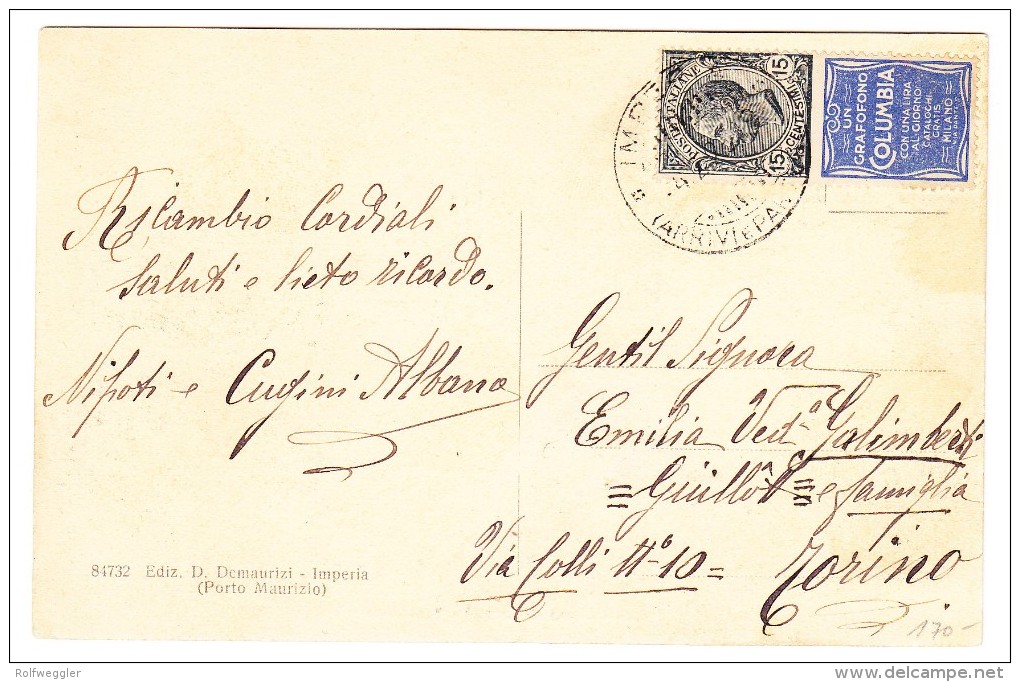 Ricambio Cordiali
Saluti e lieto ricordo.
Nipoti e Cugini Albana
84732 Ediz. D. Demaurizi - Imperia
(Porto Maurizio)
POSTE ITALIANE
15
15
CENTESIMI
(ARRIVI E PAR
UN
GRAFOFONO
COLUMBIA
CON UNA LIRA
AL GIORNO
CATALOGHI
GRATIS
MILANO
VIA DANTE
Gentil Signora
Emilia Ved.a Galimberti
= Güillôt = e famiglia
Via Colli N.o 10 = Torino
170-
Rolfweggler
delcampe.net